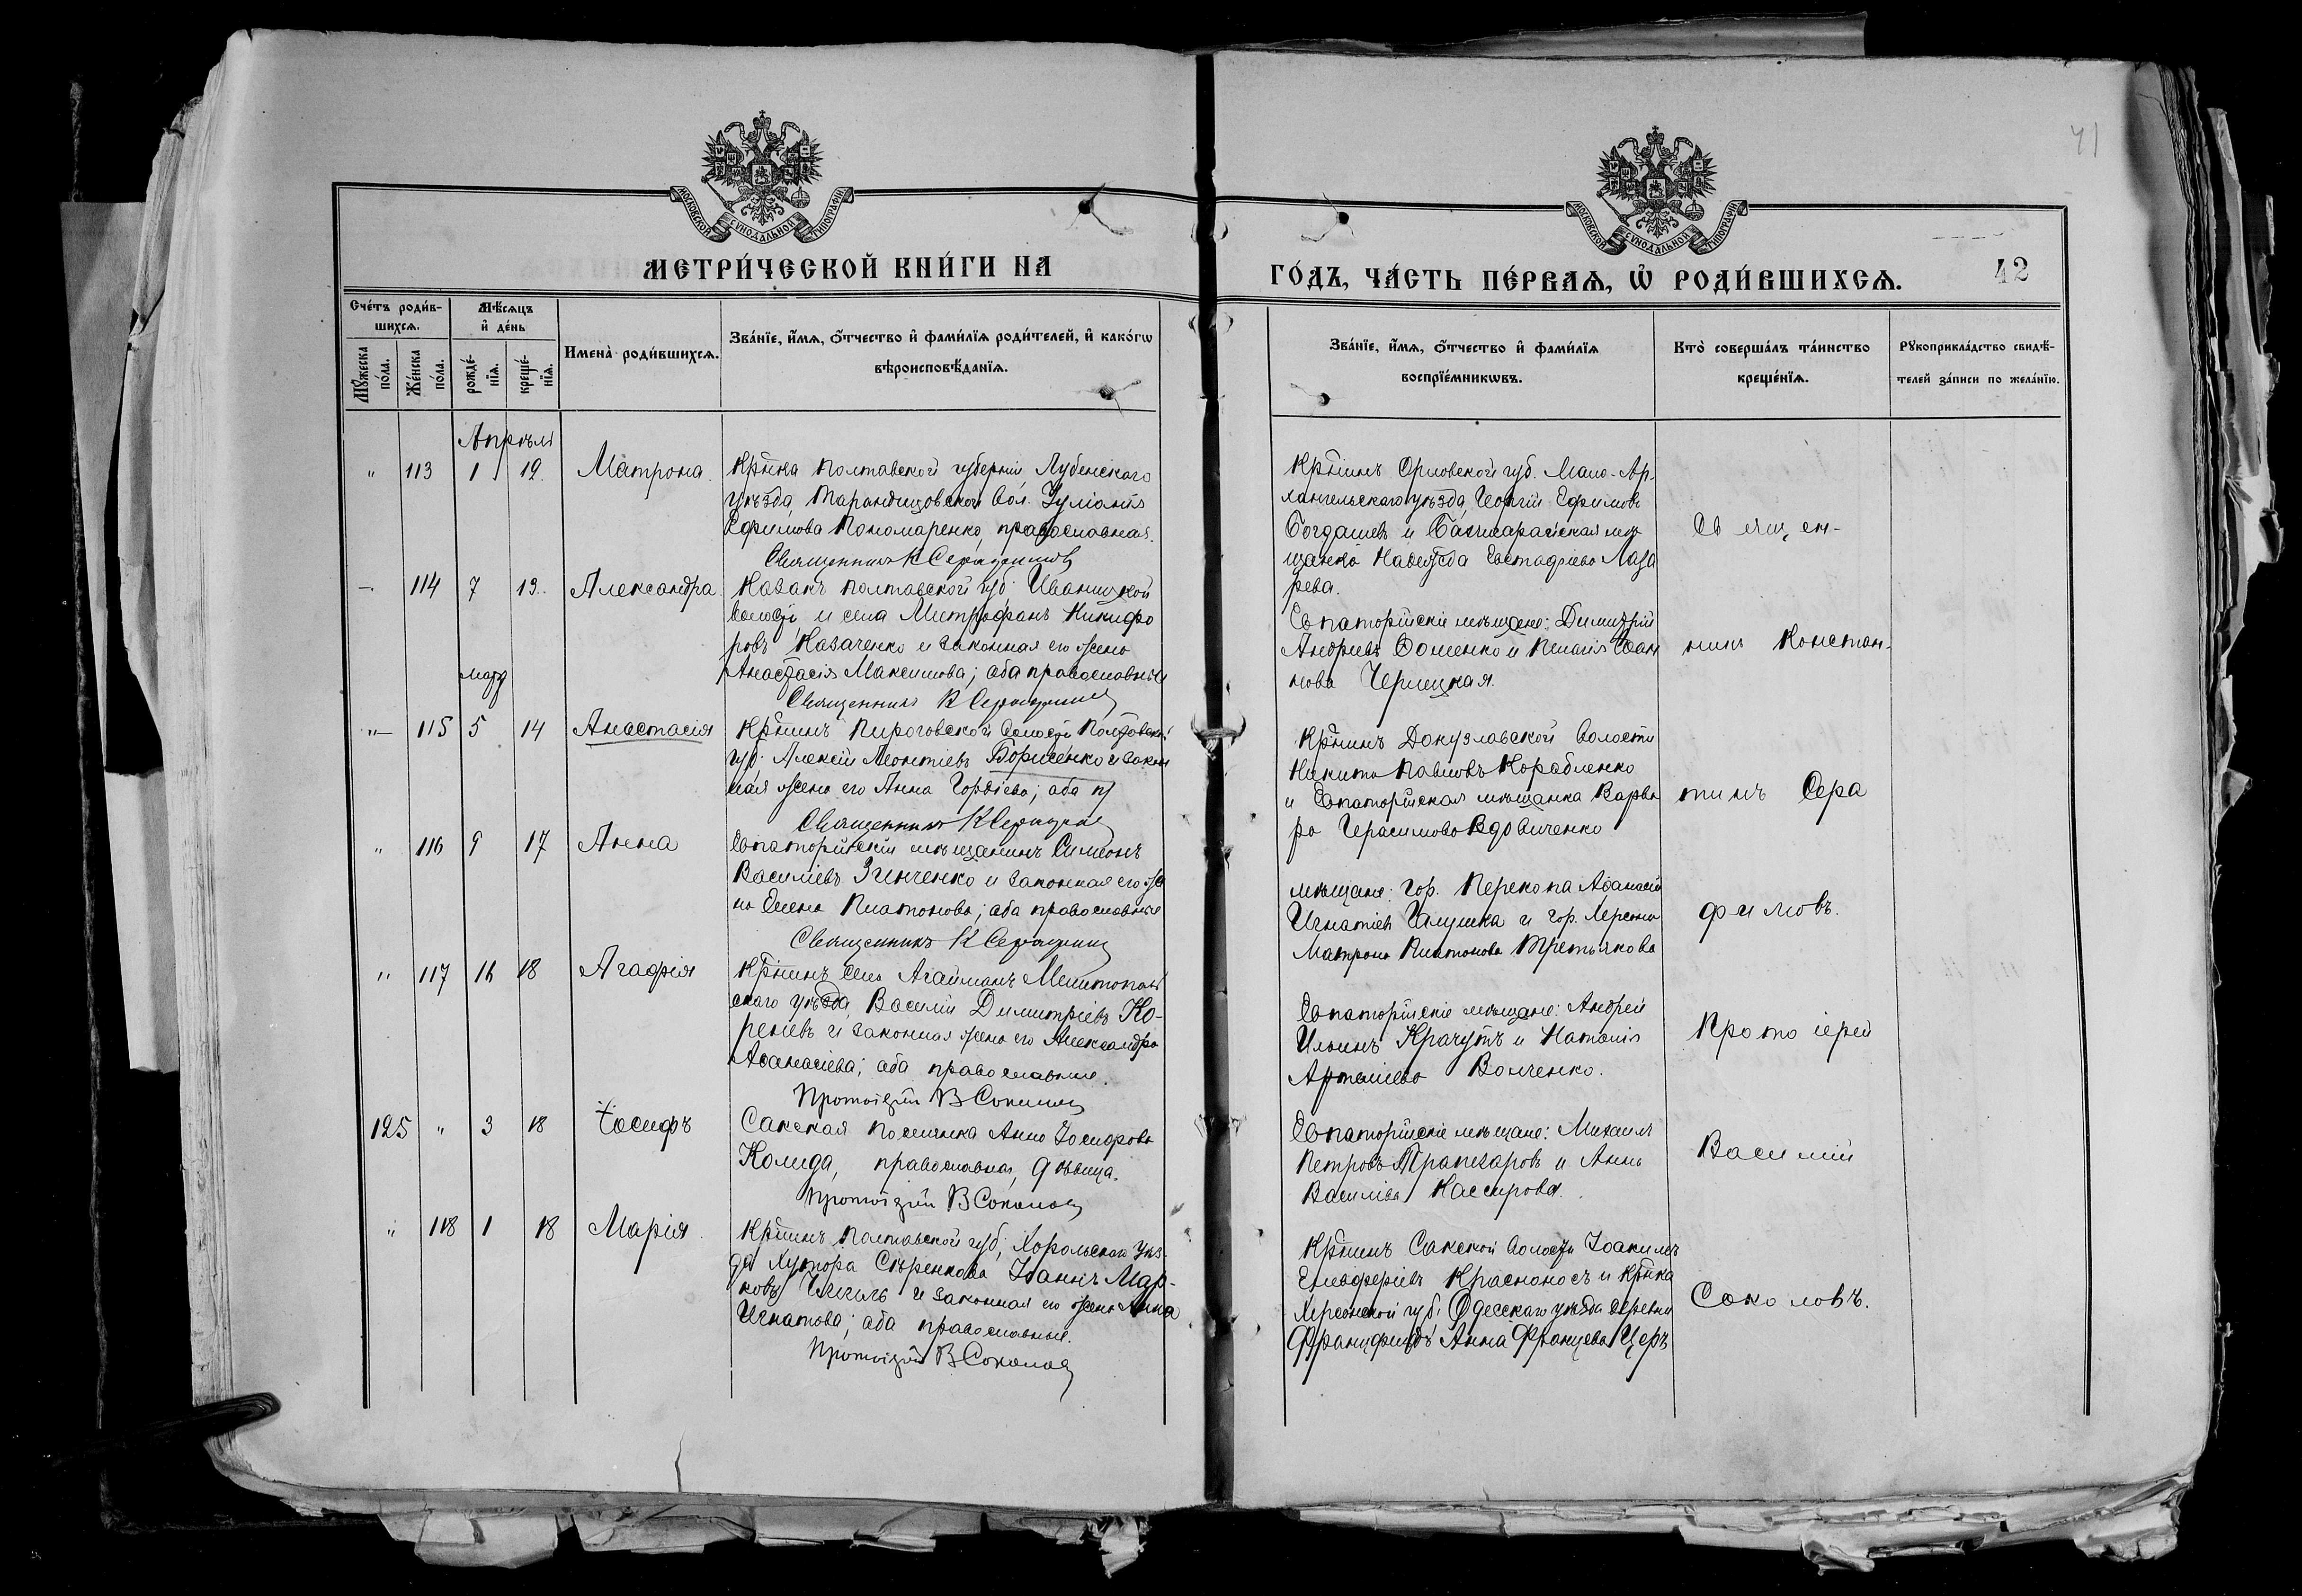 41
МОСКОВСКОЙ СѴНОДАЛЬНОЙ ТИПОГРАФІИ
МОСКОВСКОЙ СѴНОДАЛЬНОЙ ТИПОГРАФІИ
МЕТРИ́ЧЕСКОЙ КНИ́ГИ НА
ГО́ДЪ, ЧА́СТЬ ПЕ́РВАѦ, Ѡ҆ РОДИ́ВШИХСѦ.
42
Сче́тъ роди́в-
шихсѧ.
Мѣ́сѧцъ
и҆ де́нь
Мꙋ́жеска
по́ла.
Же́нска
по́ла.
рожде́-
нїѧ.
креще́-
нїѧ.
Имена̀ роди́вшихсѧ.
Зва́нїе, и҆́мѧ, ѻ҆́тчество и҆ фами́лїѧ роди́телей, и҆ како́гѡ
вѣроисповѣ́данїѧ.
Зва́нїе, и҆́мѧ, ѻ҆́тчество и҆ фами́лїѧ
воспрїе́мникѡвъ.
Кто̀ соверша́лъ та́инство
креще́нїѧ.
Рꙋкоприкла́дство свидѣ́-
телей за́писи по жела́нїю.
Апрѣль
" 113 1 12. Матрона.
Кр̃нка Полтавской губерніи, Лубенскаго
уѣзда, Тарандинцовской вол. Іуліанія
Ефимова Пономаренко, православная.
Священникъ К Серафимов
Кр̃нинъ Орловской губ. Мало-Ар-
хангельскаго уѣзда, Георгій Ефимовъ
Богдашев и Бахчисарайская мѣ
щанка Надежда Евстафіева Лаза
рева.
— 114 7 13. Александра
Казакъ Полтавской губ. Иваницкой
волости, и села Митрофанъ Никифо
ровъ Казаченко и законная его жена
Анастасія Максимова; оба православные
Священникъ К Серафимов
Евпаторійскіе мѣщане: Димитрій
Андреевъ Фоменко и Пелагія Іоан
нова Черницкая.
март
" 115 5 14 Анастасія
Кр̃нинъ Пироговской волости Полтавской
губ. Алексій Леонтіевъ Борисенко и закон
ная жена его Анна Гордіева; оба пр
Священникъ К Серафимов
Кр̃нинъ Донузлавской волости
Никита Павловъ Корабленко
и Евпаторійская мѣщанка Варва
ра Герасимова Вдовиченко
" 116 9 17 Анна
Евпаторійскій мѣщанинъ Симеонъ
Василіевъ Зинченко и законная его же
на Елена Платонова; оба православные
Священникъ К Серафимов
мѣщане: гор. Перекопа Аѳанасій
Игнатіев Галушка и гор. Херсона
Матрона Платонова Третьякова
" 117 16 18 Агафія
Кр̃нинъ села Агайманъ Мелитополь
скаго уѣзда, Василій Димитріевъ Ко-
реневъ и законная жена его Александра
Аѳанасіева; оба православные.
Протоіерей В Соколов
Евпаторійскіе мѣщане: Андрей
Ильинъ Крачутъ и Наталія
Артеміева Волченко.
125 " 3 18 Іосифъ
Сакская поселянка Анна Іосифова
Колида, православная, дѣвица.
Протоіерей В Соколов
Евпаторійскіе мѣщане: Михаилъ
Петровъ Трапезаровъ и Анна
Василіева Кассирова.
" 118 1 18 Марія.
Кр̃нинъ Полтавской губ., Хорольскаго уѣз-
да Хутора Сѣренкова Іоаннъ Мар-
ковъ и законная его жена Анна
Игнатова; оба православные.
Протоіерей В Соколов
Кр̃нинъ Сакской волости Іоакимъ
Елевферіевъ Красноносъ и кр̃нка
Херсонской губ. Одесскаго уѣзда деревни
Францфельдъ Анна Францева Церъ
Священ-
никъ Констан-
тинъ Сера
фимовъ.
Протоіерей
Василій
Соколовъ.